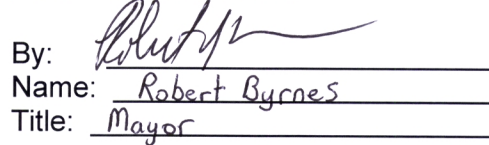 By:
Name: Robert Byrnes
Title: Mayor